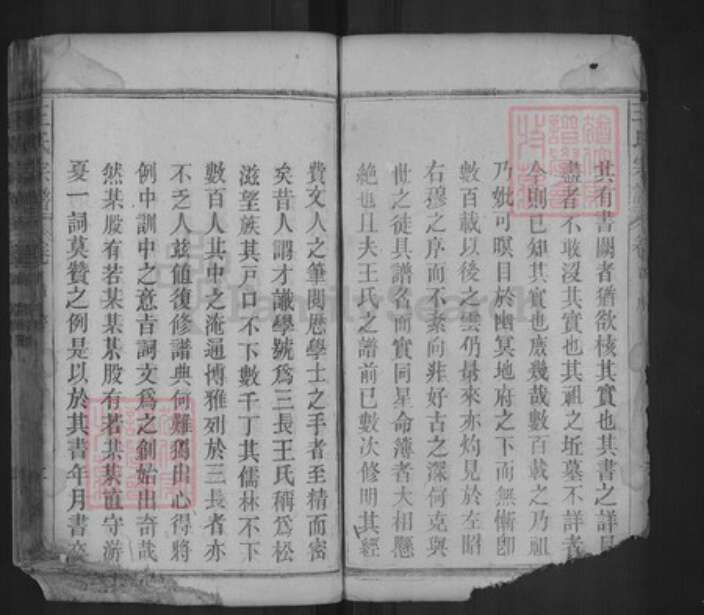 其有書闕者猶欲核其實也其書之詳且
盡者不敢沒其實也其祖之坵墓不詳者
今則已知其實也庶幾哉數百載之乃祖
乃妣可暝目於幽冥地府之下而無慚卽
數百載以後之雲仍曇來亦灼見於左昭
右穆之序而不紊向非好古之深何克與
世之徒具譜名而實同星命簿者大相懸
絶也且夫王氏之譜前已數次修明其經
費文人之筆閱歷學士之手者至精而密
矣昔人謂才識學號爲三長王氏稱爲松
滋望族其戸口不下數千丁其儒林不下
數百人其中之淹通博雅列於三長者亦
不乏人玆值復修譜典何難獨出心得將
例中訓中之意旨詞文爲之創始出奇哉
然某股有若某某某股有若某某直守游
夏一詞莫贊之例是以於其書年月書
王氏宗譜
Family Search